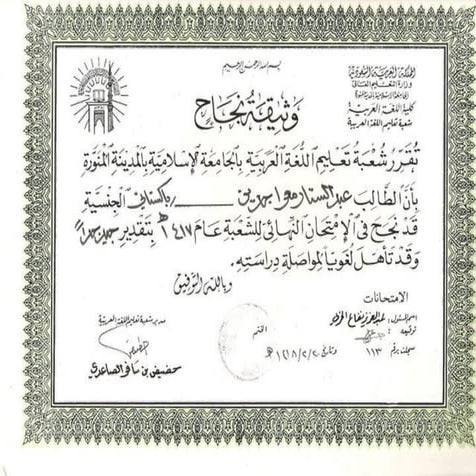 بسم الله الرحمن الرحيم
المملكة العربية السعودية
وزارة التعليم العالي
الجامعة الإسلامية بالمدينة المنورة
كلية اللغة العربية
شعبة تعليم اللغة العربية
وثيقة نجاح
تقرر شعبة تعليم اللغة العربية بالجامعة الإسلامية بالمدينة المنورة
بأن الطالب عبد الستار / باكستاني الجنسية
قد نجح في الإمتحان النهائي للشعبة عام ١٤١٧ هـ بتقدير جيد جداً
وقد تأهل لغوياً لمواصلة دراسته.
وبالله التوفيق
الامتحانات
اسم المسئول: عبد العزيز
توقيعه:
سجلت برقم ١١٣ وتاريخ ١٤١٨/٢/٢٠ هـ
الختم
مدير شعبة تعليم اللغة العربية
الصاعدي